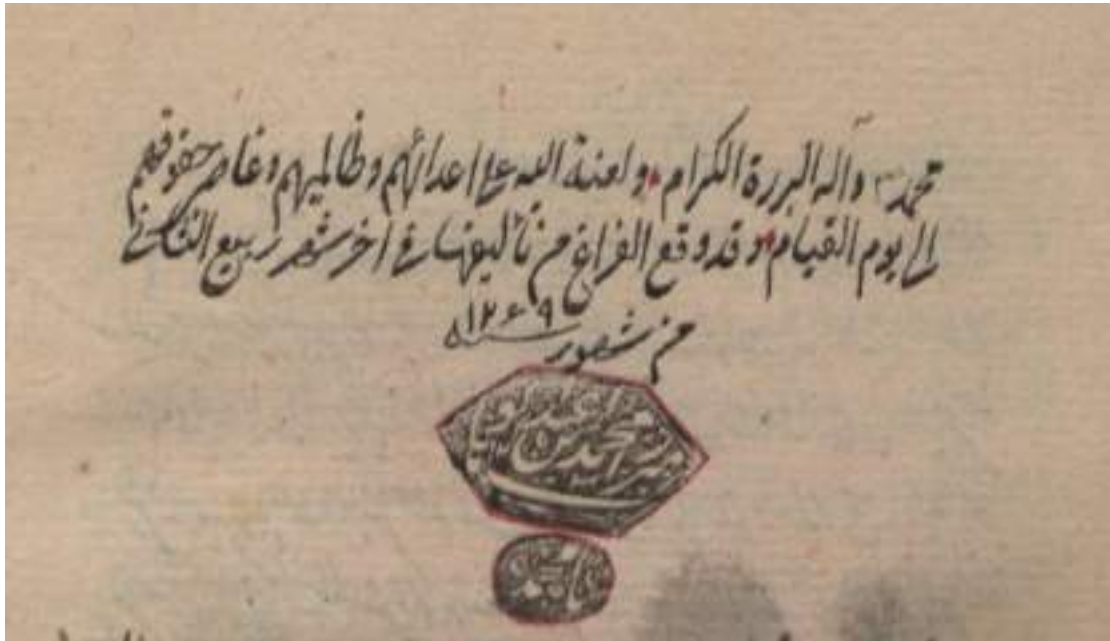 محمد وآله البررة الكرام ولعنة الله على اعدائهم وظالميهم وغاصبي حقوقهم
الى يوم القيام وقد وقع الفراغ من تأليفها في اخر شهر ربيع الثاني
من شهور سنه ١٢٦٩
محمد